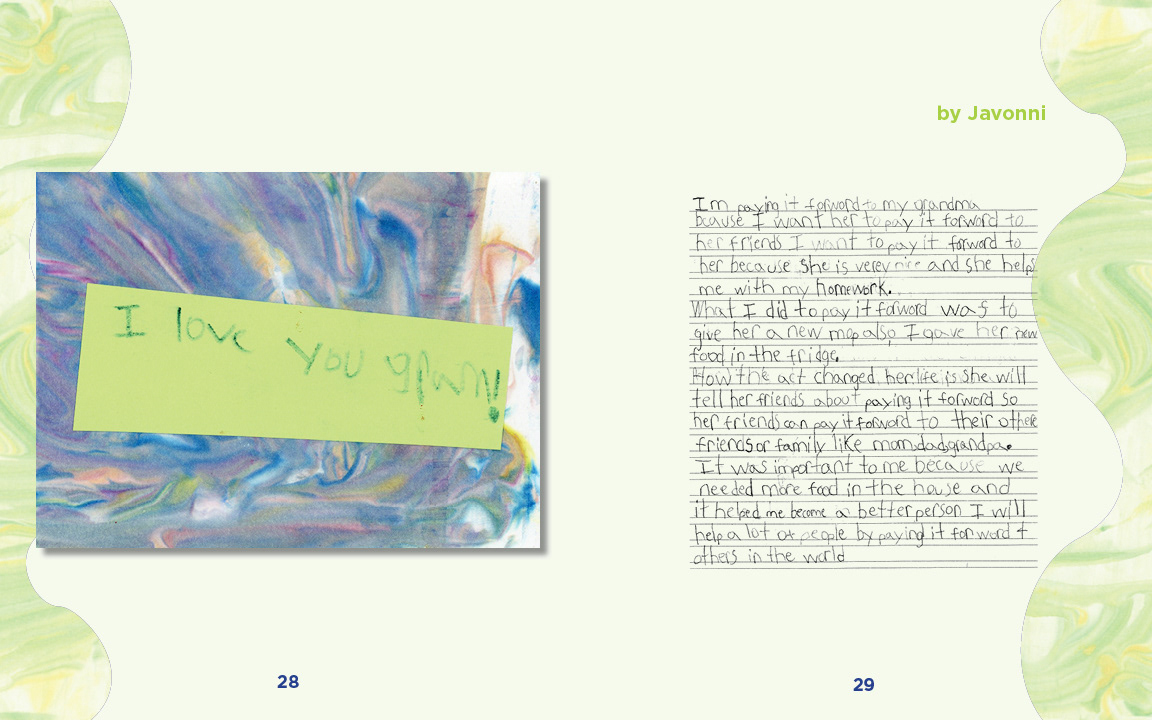 I love you gram!
28
by Javonni
Im paying it forword to my grandma
bcause I want her to pay it forword to
her friends I want to pay it forword to
her because she is verey nice and she helps
me with my homework.
What I did to pay it forword was to
give her a new mop also I gave her new
food in the fridge.
How the act changed her life is she will
tell her friends about paying it forword so
her friends can pay it forword to their othere
friends or family like mom,dad,grandpa.
It was important to me because we
needed more food in the house and
it helped me become a better person I will
help a lot of people by paying it forword t
others in the world
29